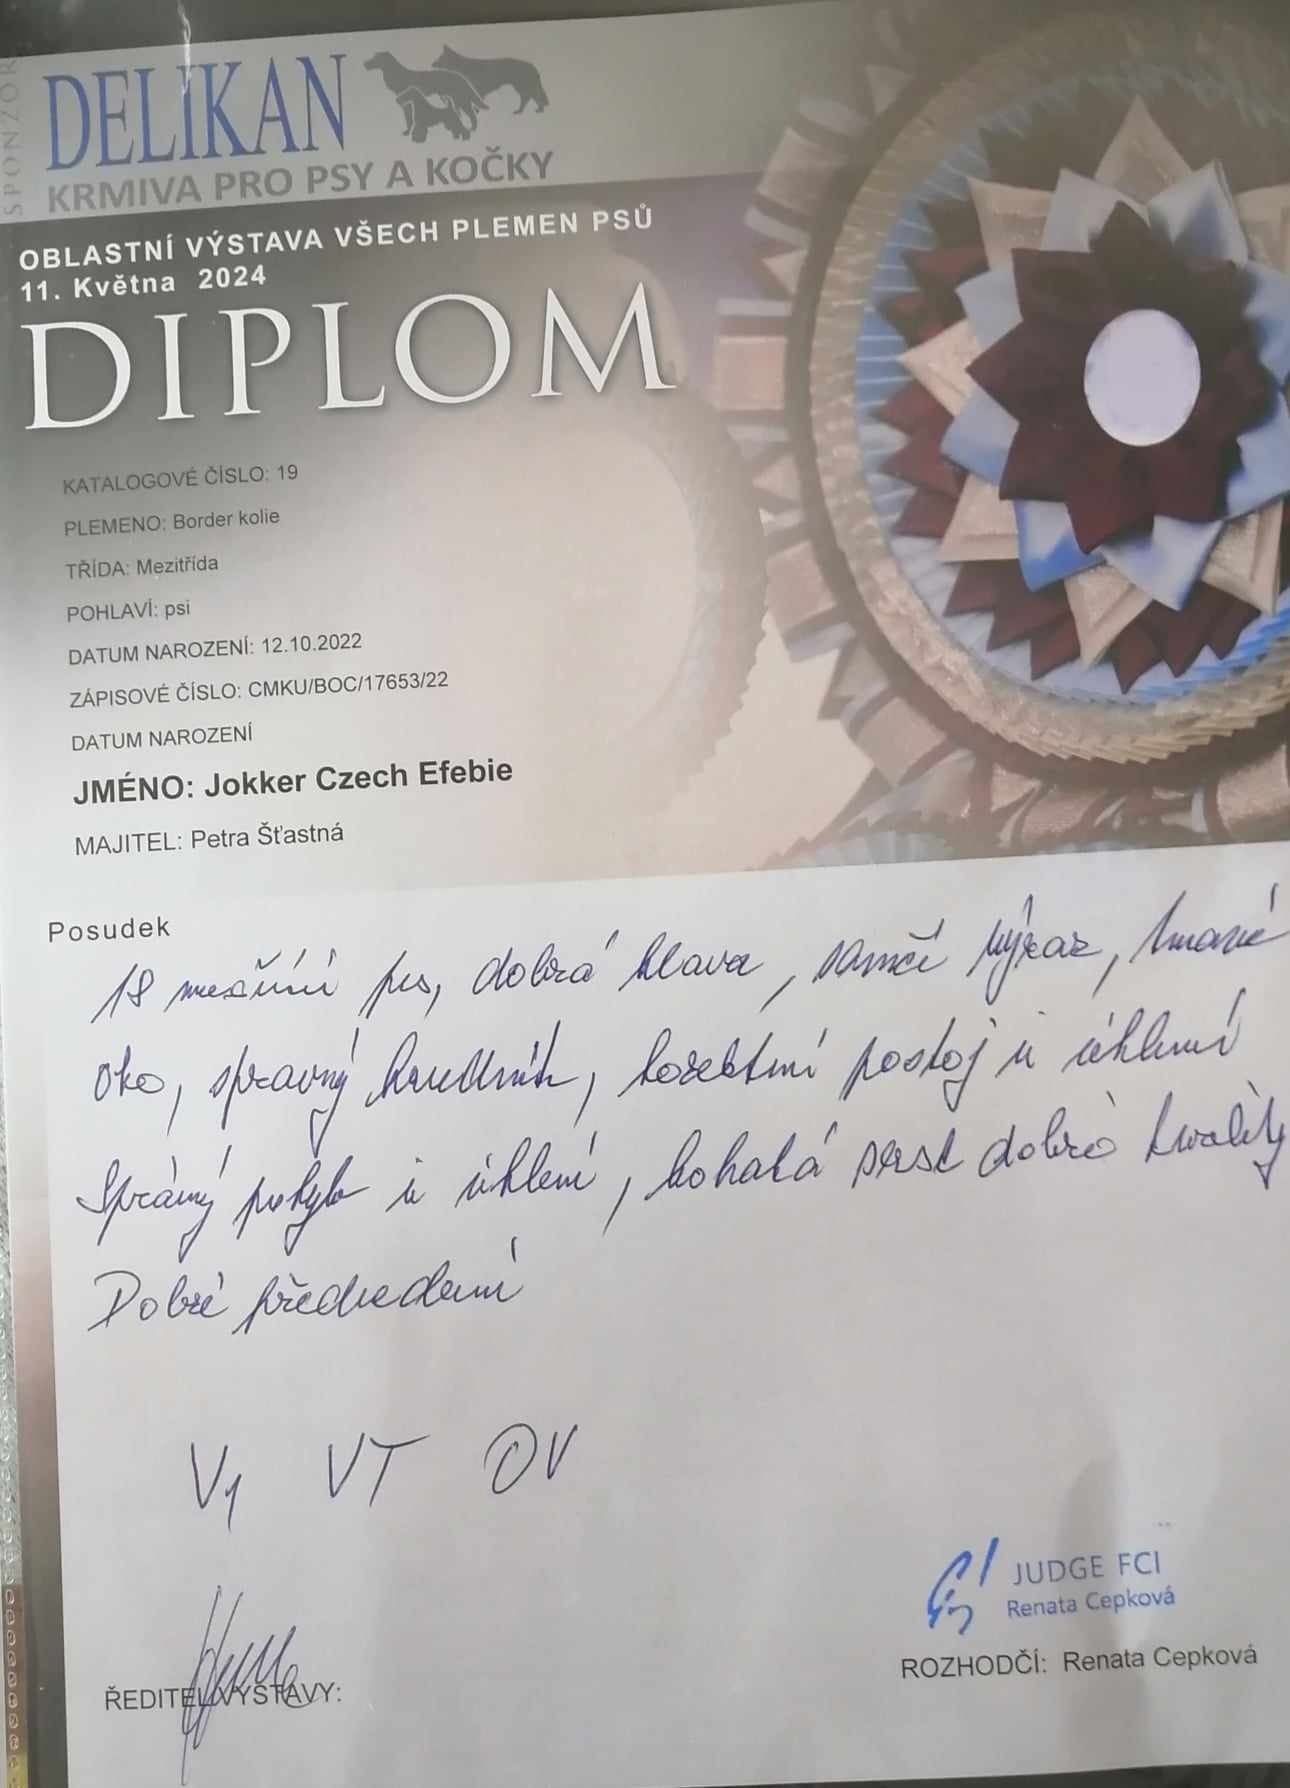 SPONZOR
DELIKAN
KRMIVA PRO PSY A KOČKY
OBLASTNÍ VÝSTAVA VŠECH PLEMEN PSŮ
11. Května 2024
DIPLOM
KATALOGOVÉ ČÍSLO: 19
PLEMENO: Border kolie
TŘÍDA: Mezitřída
POHLAVÍ: psi
DATUM NAROZENÍ: 12.10.2022
ZÁPISOVÉ ČÍSLO: CMKU/BOC/17653/22
DATUM NAROZENÍ
JMÉNO: Jokker Czech Efebie
MAJITEL: Petra Šťastná
Posudek
18 měsíční pes, dobrá hlava, samčí výraz, tmavé
oko, správný hrudník, korektní postoj i úhlení
Správný pohyb i úhlení, bohatá srst dobré kvality
Dobré předvedení
V1 VT OV
JUDGE FCI
Renata Cepková
ŘEDITEL VÝSTAVY:
ROZHODČÍ: Renata Cepková